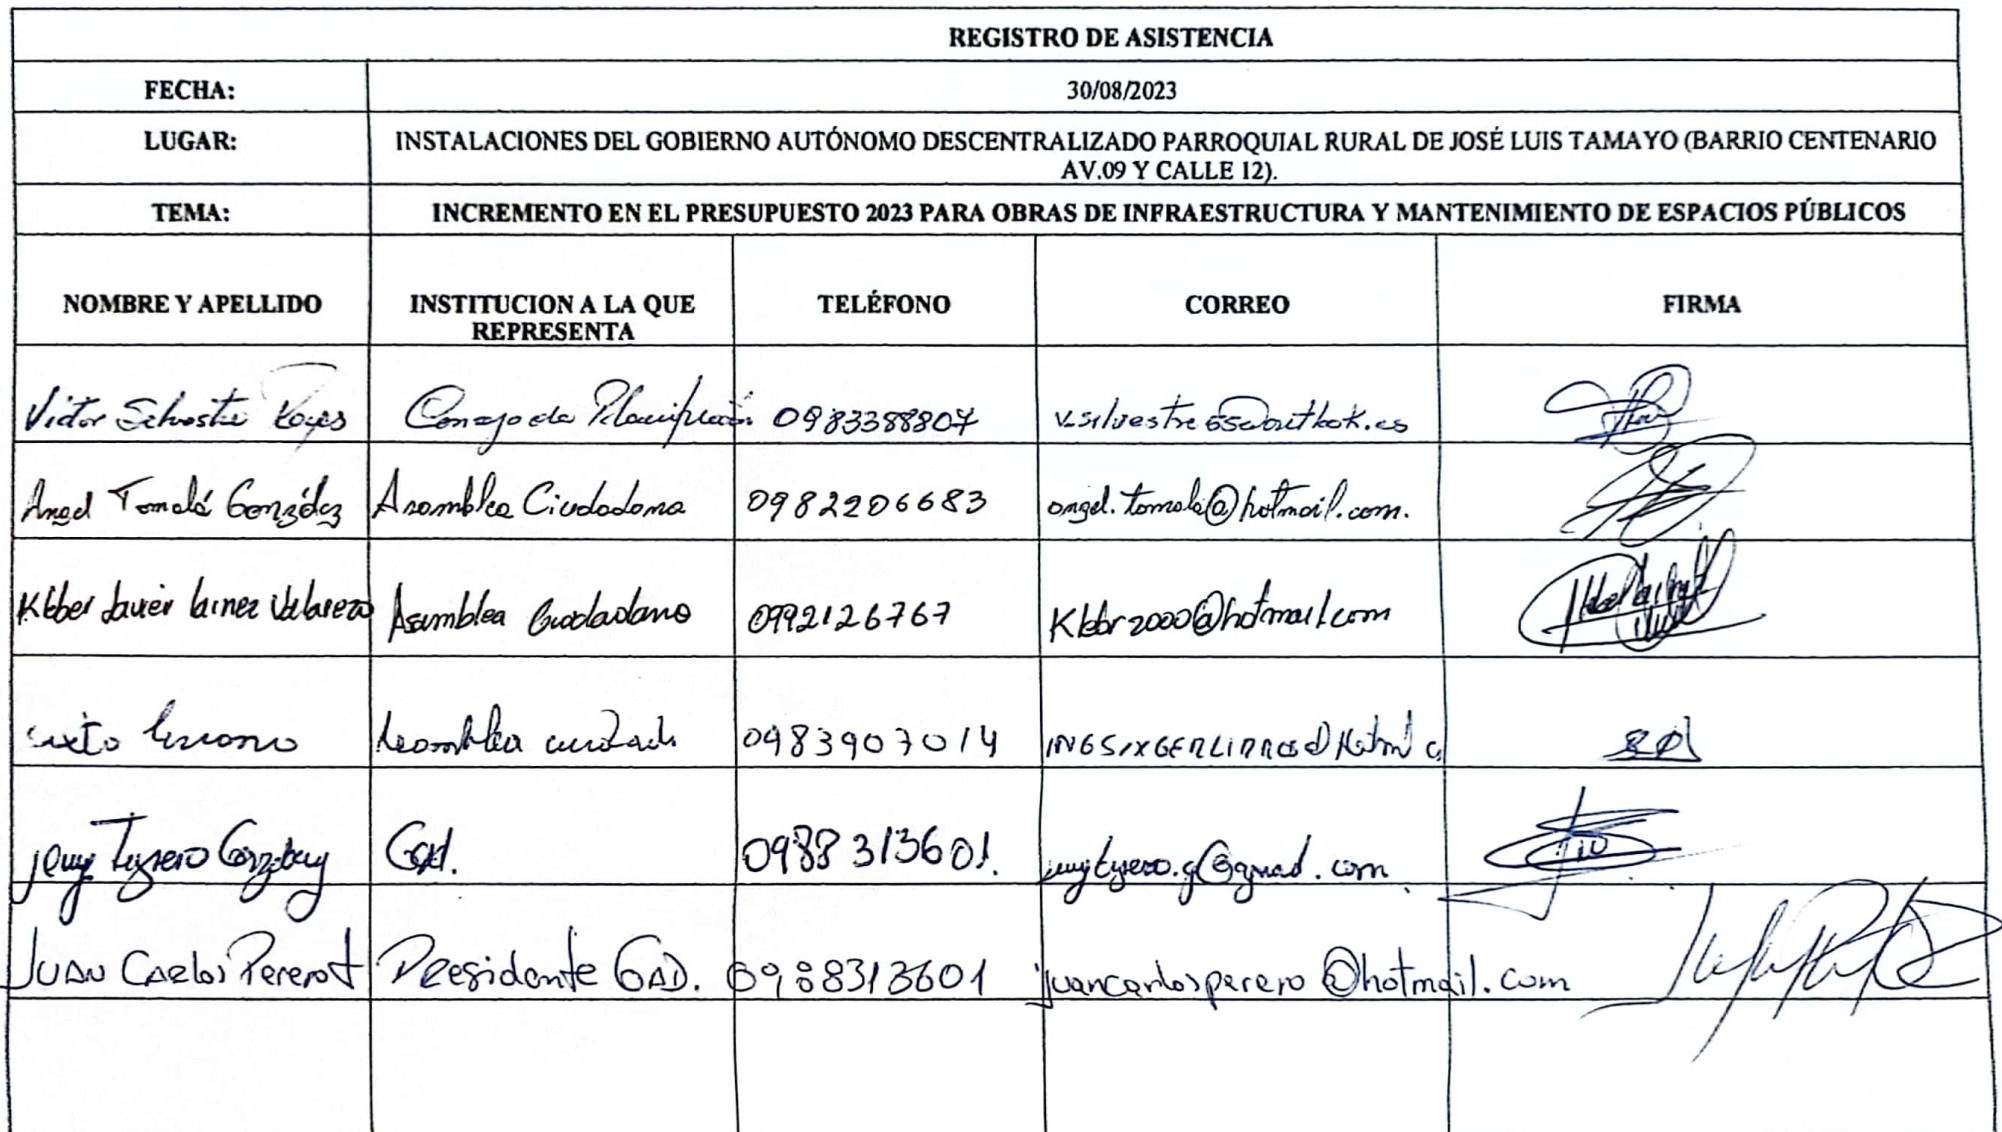 REGISTRO DE ASISTENCIA
FECHA: 30/08/2023
LUGAR: INSTALACIONES DEL GOBIERNO AUTÓNOMO DESCENTRALIZADO PARROQUIAL RURAL DE JOSÉ LUIS TAMAYO (BARRIO CENTENARIO
AV.09 Y CALLE 12).
TEMA: INCREMENTO EN EL PRESUPUESTO 2023 PARA OBRAS DE INFRAESTRUCTURA Y MANTENIMIENTO DE ESPACIOS PÚBLICOS
NOMBRE Y APELLIDO INSTITUCION A LA QUE
REPRESENTA TELÉFONO CORREO FIRMA
Victor Silvestre Reyes Consejo de Planificación 0983388807 v.silvestre65@outlook.es
Angel Tomalá González Asamblea Ciudadana 0982206683 angel.tomala@hotmail.com.
Kleber Javier Lainez Asamblea Ciudadana 0992126767 Klebr2000@hotmail.com
Sixto Asamblea 0983907014
Jenny Tigrero Gonzabay Gad. 0988313601.
JUAN CARLOS Perero Presidente GAD. 0988313601 juancarlosperero@hotmail.com